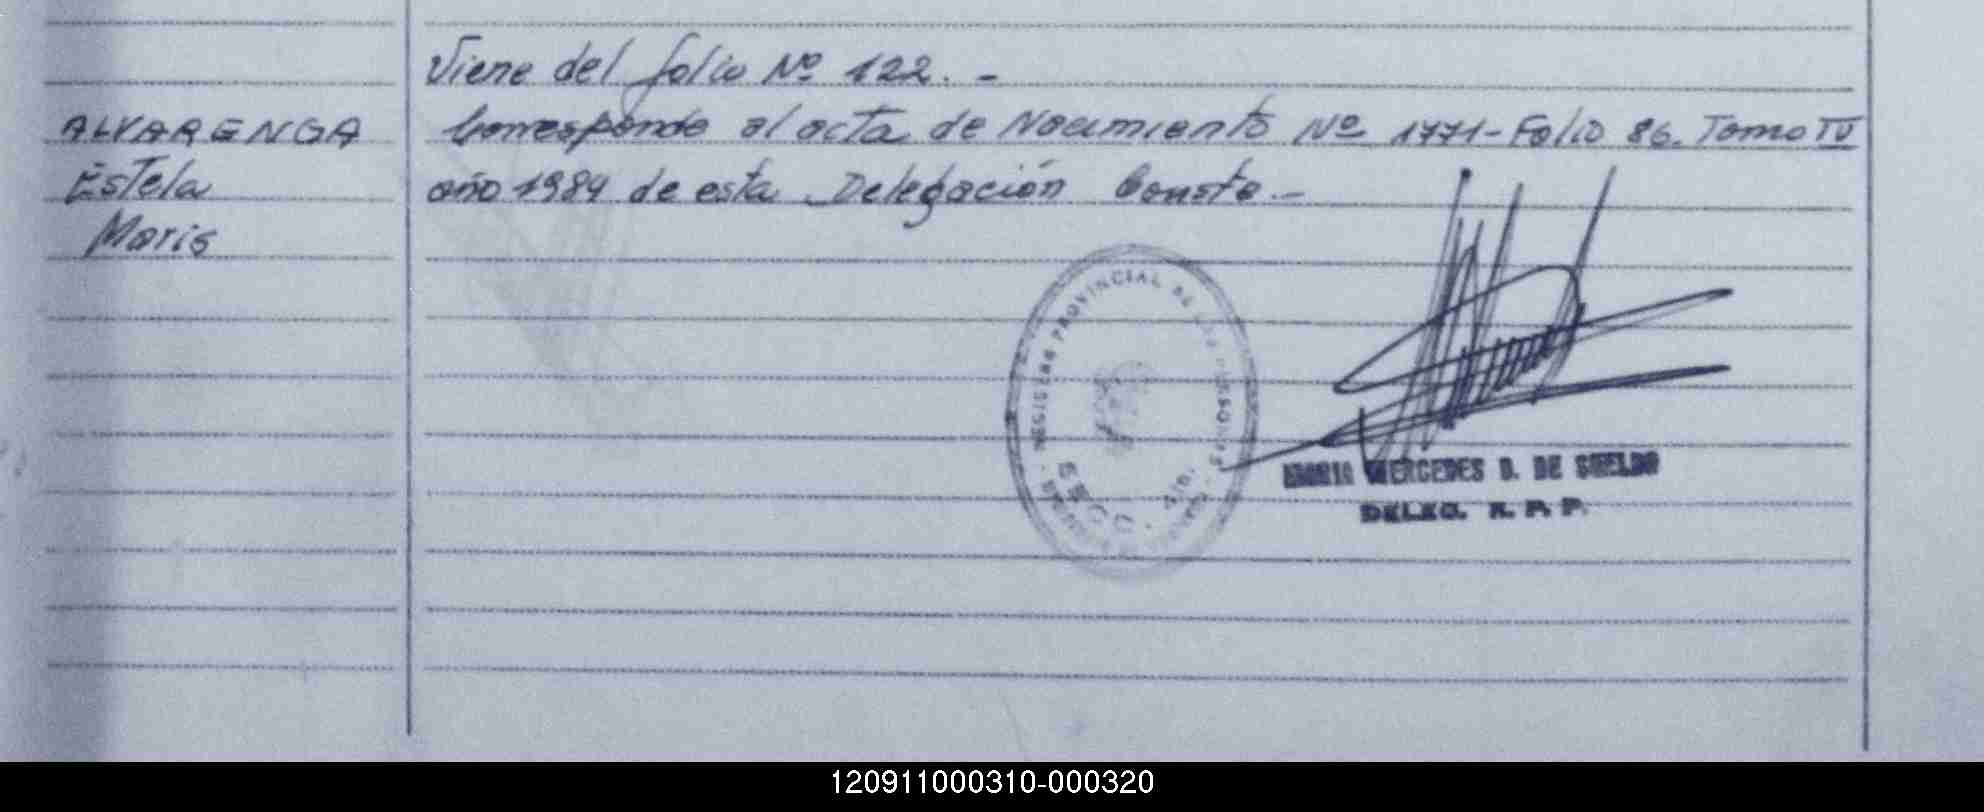 Viene del folio Nº 122. -
ALVARENGA
Estela
Maris
Corresponde al acta de Nacimiento Nº 1771-Folio 86. Tomo IV
año 1984 de esta Delegación Conste. -
REGISTRO PROVINCIAL DE LAS PERSONAS
MARIA MERCEDES D. DE SUELDO
DELEG. R. P. P.
120911000310-000320